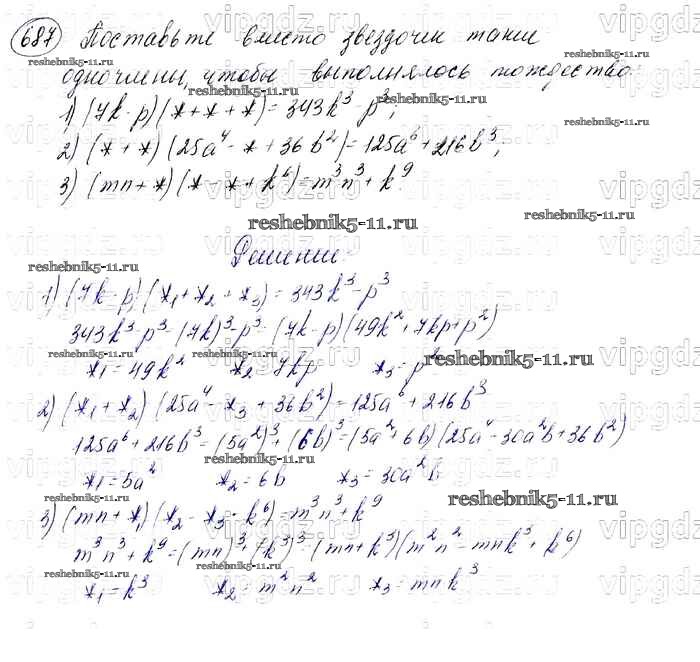 687 Поставьте вместо звездочек такие
одночлены, чтобы выполнялось тождество:
1) (7k - p)(* + * + *) = 343k³ - p³;
2) (* + *)(25a⁴ - * + 36b²) = 125a⁶ + 216b³;
3) (mn + *)(* - * + k⁶) = m³n³ + k⁹.
Решение
1) (7k - p)(*₁ + *₂ + *₃) = 343k³ - p³
343k³ - p³ = (7k)³ - p³ = (7k - p)(49k² + 7kp + p²)
*₁ = 49k² *₂ = 7kp *₃ = p²
2) (*₁ + *₂)(25a⁴ - *₃ + 36b²) = 125a⁶ + 216b³
125a⁶ + 216b³ = (5a²)³ + (6b)³ = (5a² + 6b)(25a⁴ - 30a²b + 36b²)
*₁ = 5a² *₂ = 6b *₃ = 30a²b
3) (mn + *₁)(*₂ - *₃ + k⁶) = m³n³ + k⁹
m³n³ + k⁹ = (mn)³ + (k³)³ = (mn + k³)(m²n² - mnk³ + k⁶)
*₁ = k³ *₂ = m²n² *₃ = mnk³
reshebnik5-11.ru
vipgdz.ru